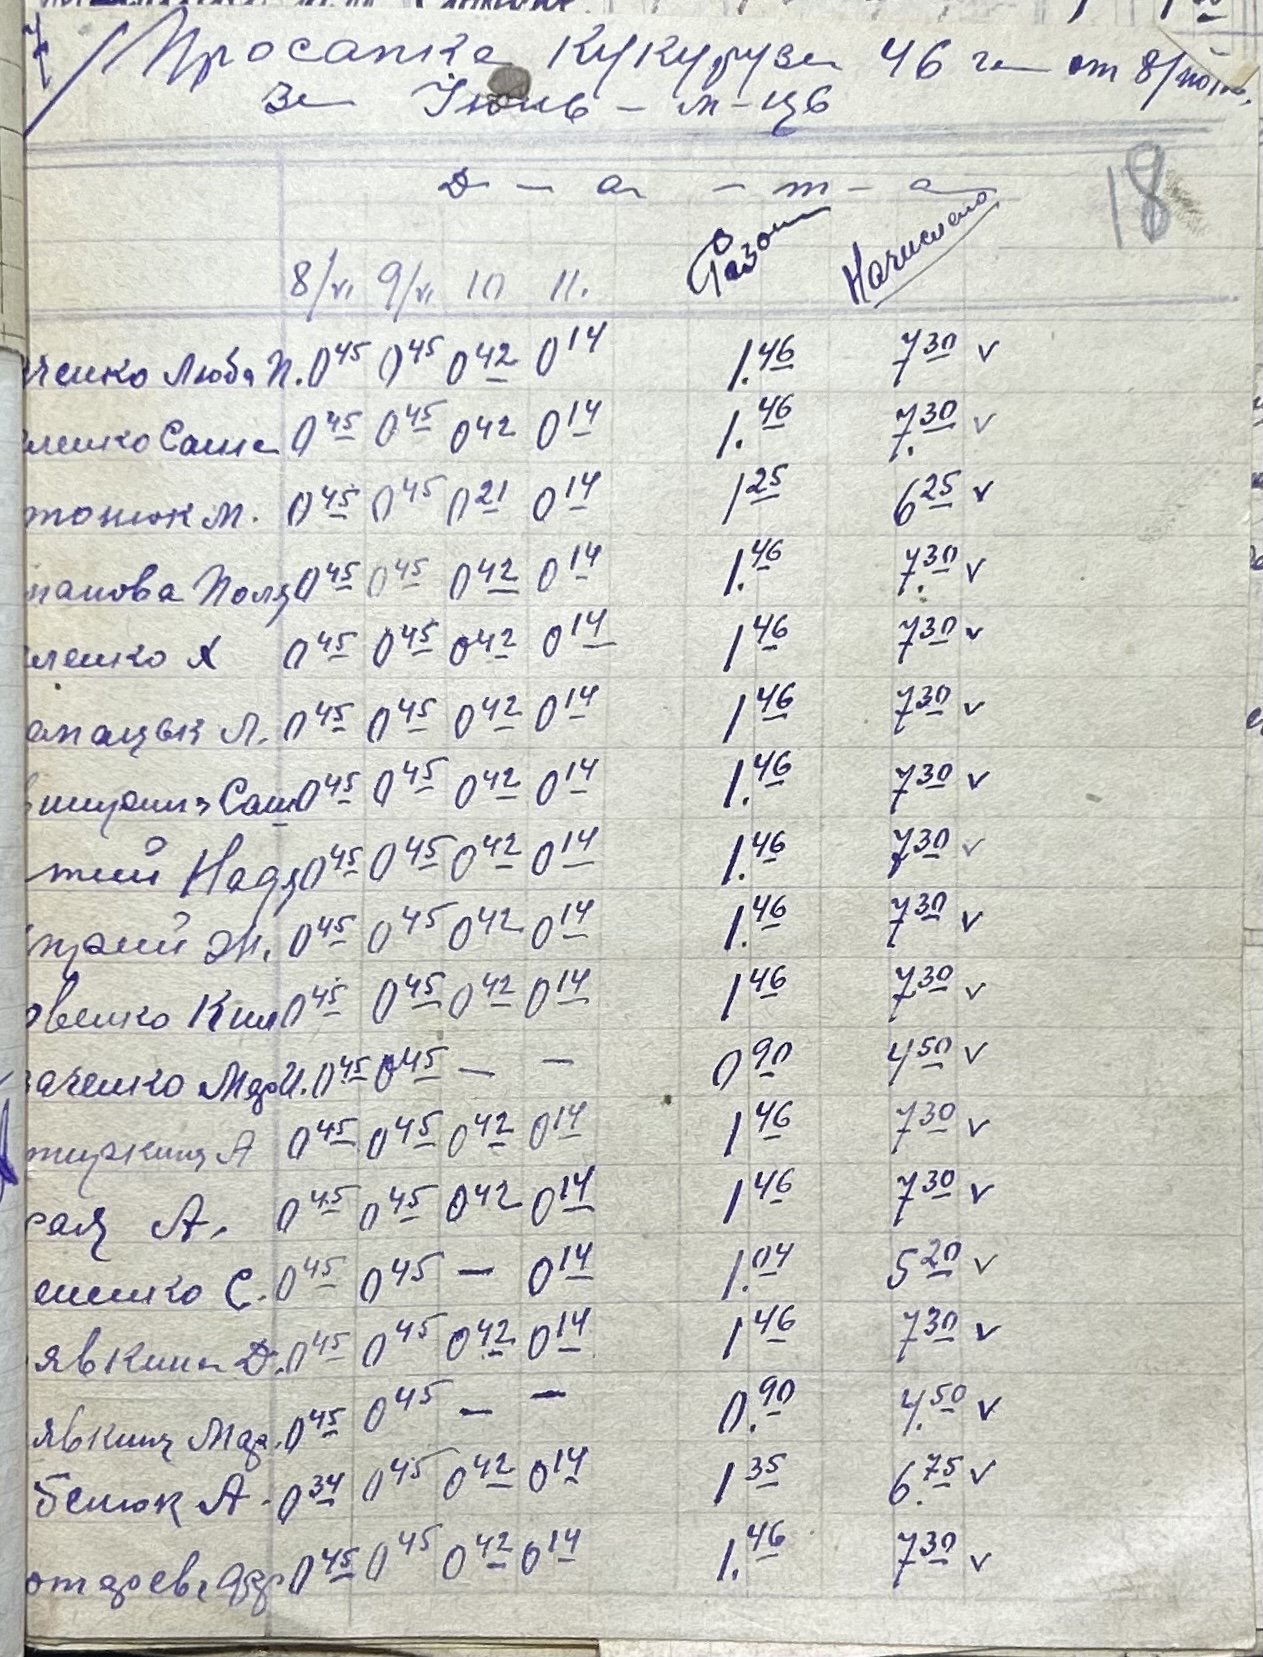 Просапка Кукурузы 46 га от 8/
за Июнь – м-ць
18
Д – а – т – а
8/VI 9/VI 10 11. Разом Начислено
ченко Люба П. 0 45 0 45 0 42 0 14 1.46 7 30 v
ленко Саша 0 45 0 45 0 42 0 14 1.46 7.30 v
тонюк М. 0 45 0 45 0 21 0 14 1 25 6 25 v
панова Поля 0 45 0 45 0 42 0 14 1.46 7.30 v
ленко Х 0 45 0 45 0 42 0 14 1 46 7 30 v
Л. 0 45 0 45 0 42 0 14 1 46 7 30 v
Саш 0 45 0 45 0 42 0 14 1.46 7 30 v
тий Надя 0 45 0 45 0 42 0 14 1.46 7 30 v
0 45 0 45 0 42 0 14 1.46 7 30 v
венко Кил 0 45 0 45 0 42 0 14 1 46 7 30 v
аченко Мар И. 0 45 0 45 – – 0 90 4 50 v
А 0 45 0 45 0 42 0 14 1 46 7 30 v
рая А. 0 45 0 45 0 42 0 14 1 46 7 30 v
енко С. 0 45 0 45 – 0 14 1.04 5 20 v
явкина Д. 0 45 0 45 0 42 0 14 1 46 7 30 v
явкина Мар. 0 45 0 45 – – 0.90 4.50 v
бенюк А. 0 34 0 45 0 42 0 14 1 35 6.75 v
0 45 0 45 0 42 0 14 1.46 7 30 v